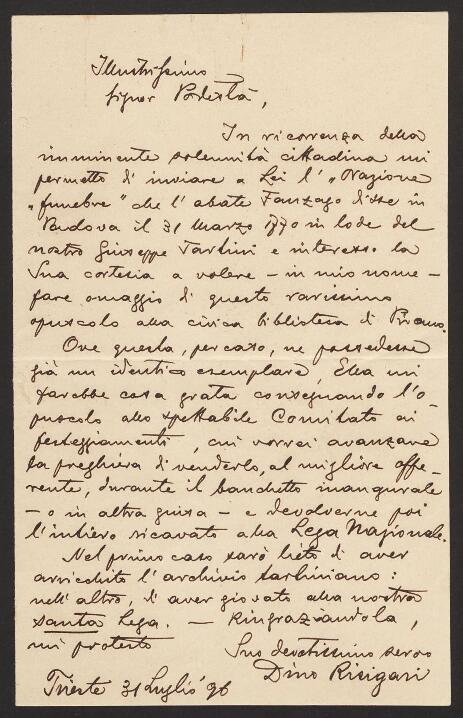 Illustrissimo
Signor Podestà,
In ricorrenza della
imminente solennità cittadina mi
permetto di inviare a Lei l' „Orazione
„funebre" che l'abate Fanzago disse in
Padova il 31 Marzo 1770 in lode del
nostro Giuseppe Tartini e interesso la
Sua cortesia a volere – in mio nome –
fare omaggio di questo rarissimo
opuscolo alla civica biblioteca di Pirano.
Ove questa, per caso, ne possedesse
già un identico esemplare, Ella mi
farebbe cosa grata consegnando l'o-
puscolo allo spettabile Comitato ai
festeggiamenti, cui vorrei avanzare
la preghiera di venderlo, al migliore offe-
rente, durante il banchetto inaugurale
– o in altra guisa – e devolverne poi
l'intiero ricavato alla Lega Nazionale.
Nel primo caso sarò lieto di aver
arricchito l'archivio tartiniano:
nell'altro, di aver giovato alla nostra
santa Lega. — Ringraziandola,
mi protesto
Suo devotissimo servo
Dino Risigari
Trieste 31 Luglio 96